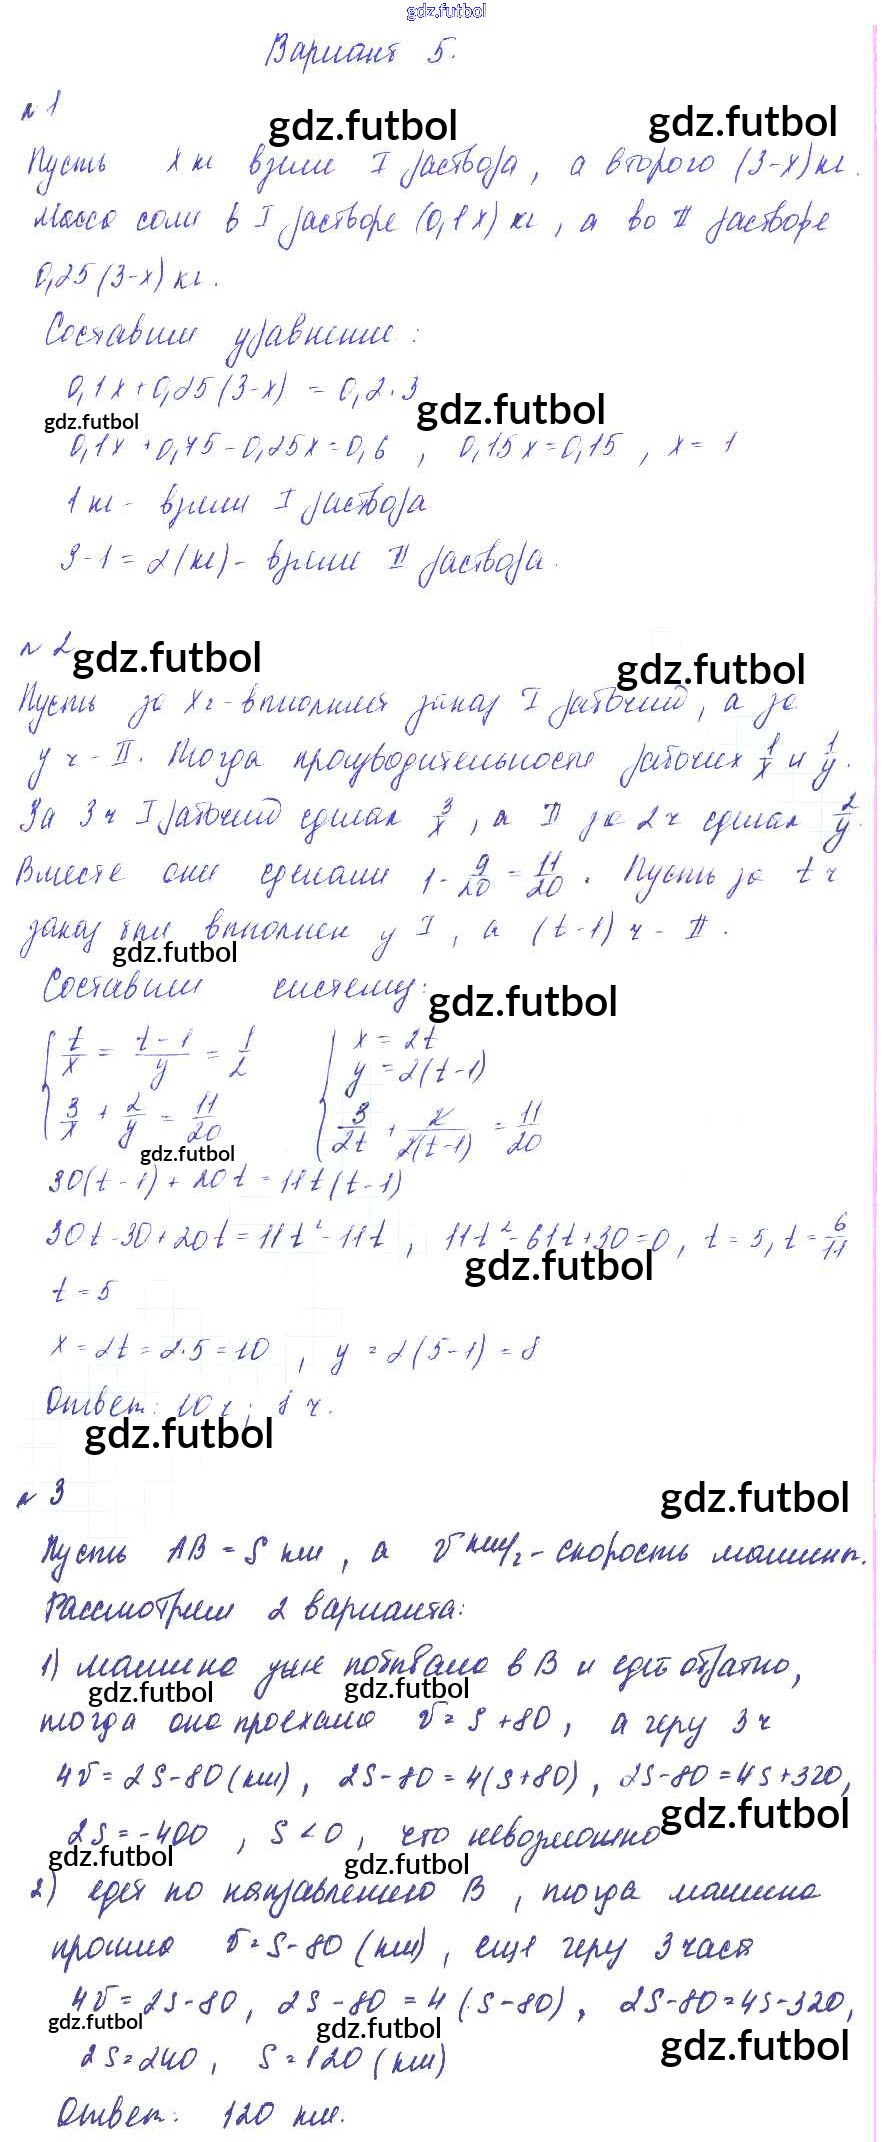 gdz.futbol
Вариант 5.
№1
gdz.futbol gdz.futbol
Пусть x кг взяли I раствора, а второго (3-x) кг.
Масса соли в I растворе (0,1x) кг, а во II растворе
0,25(3-x) кг.
Составим уравнение:
0,1x+0,25(3-x) = 0,2·3
gdz.futbol gdz.futbol
0,1x+0,75-0,25x=0,6, 0,15x=0,15, x=1
1 кг - взяли I раствора
3-1=2(кг)- взяли II раствора.
№2
gdz.futbol gdz.futbol
Пусть за x ч - выполнит заказ I рабочий, а за
y ч - II. Тогда производительности рабочих 1/x и 1/y.
За 3ч I рабочий сделал 3/x, а II за 2ч сделал 2/y.
Вместе они сделали 1-9/20=11/20. Пусть за t ч
заказ был выполнен у I, а (t-1) ч - II.
gdz.futbol
Составим систему:
gdz.futbol
t/x = t-1/y = 1/2 x=2t
y=2(t-1)
3/x + 2/y = 11/20 3/2t + 2/2(t-1) = 11/20
gdz.futbol
30(t-1)+20t=11t(t-1)
30t-30+20t=11t²-11t, 11t²-61t+30=0, t=5, t=6/11
gdz.futbol
t=5
x=2t=2·5=10, y=2(5-1)=8
Ответ: 10 ч; 8 ч.
gdz.futbol
№3
gdz.futbol
Пусть AB=S км, а v км/ч - скорость машины.
Рассмотрим 2 варианта:
1) машина уже побывала в B и едет обратно,
gdz.futbol gdz.futbol
тогда она проехала v=S+80, а через 3ч
4v=2S-80(км), 2S-80=4(S+80), 2S-80=4S+320,
gdz.futbol
2S=-400, S<0, что невозможно
gdz.futbol gdz.futbol
2) едет по направлению B, тогда машина
прошла v=S-80 (км), еще через 3 часа
4v=2S-80, 2S-80=4(S-80), 2S-80=4S-320,
gdz.futbol gdz.futbol gdz.futbol
2S=240, S=120(км)
Ответ: 120 км.